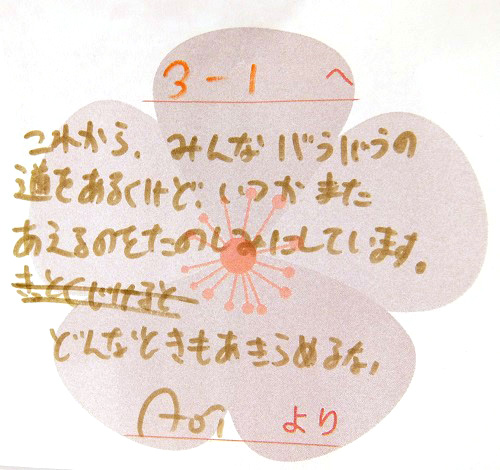 3-1 へ
これから、みんなバラバラの
道をあるくけど、いつかまた
あえるのをたのしみにしています。
どんなときもあきらめるな、
Aoi より